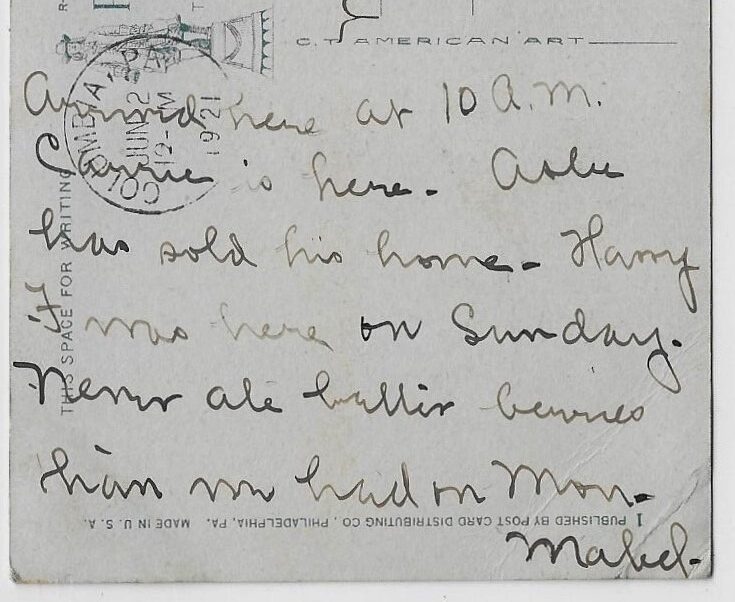 C.T. AMERICAN ART
COLUMBIA, PA.
JUN 2
12-M
1921
Arrived here at 10 A.M.
Carrie is here. Aslie
has sold his home. Harry
was here on Sunday.
Never ate better berries
than we had on Mon.
Mabel.
THIS SPACE FOR WRITING
1 PUBLISHED BY POST CARD DISTRIBUTING CO., PHILADELPHIA, PA. MADE IN U. S. A.